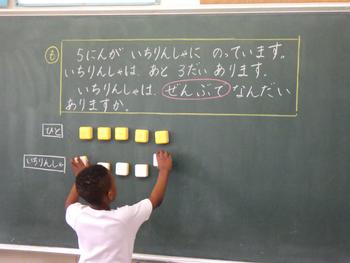 も
5にんが いちりんしゃに のっています。
いちりんしゃは、あと 3だい あります。
いちりんしゃは、ぜんぶで なんだい
ありますか。
ひと
いちりんしゃ